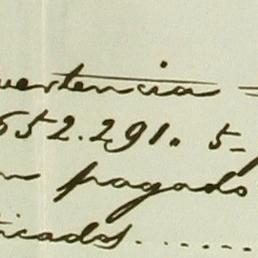 vertencia =
652.291. 5-
n pagado
ticados......